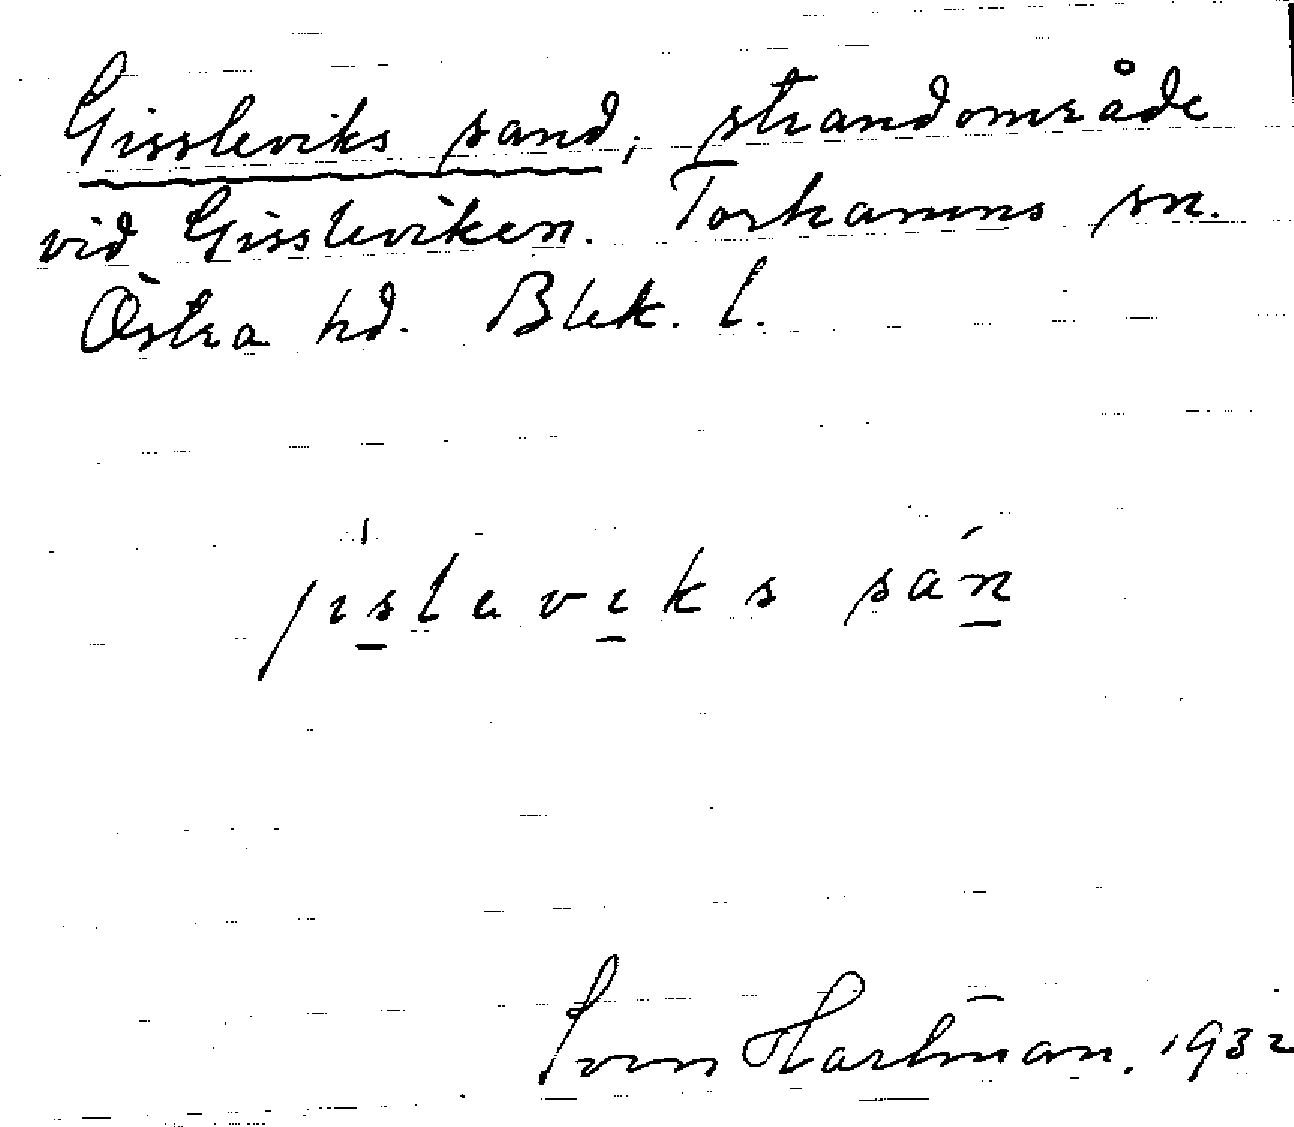 Gissleviks sand, strandområde
vid Gissleviken. Torhamns sn.
Östra hd. Blek. l.
jisleviks sán
Sven Hartman. 1932